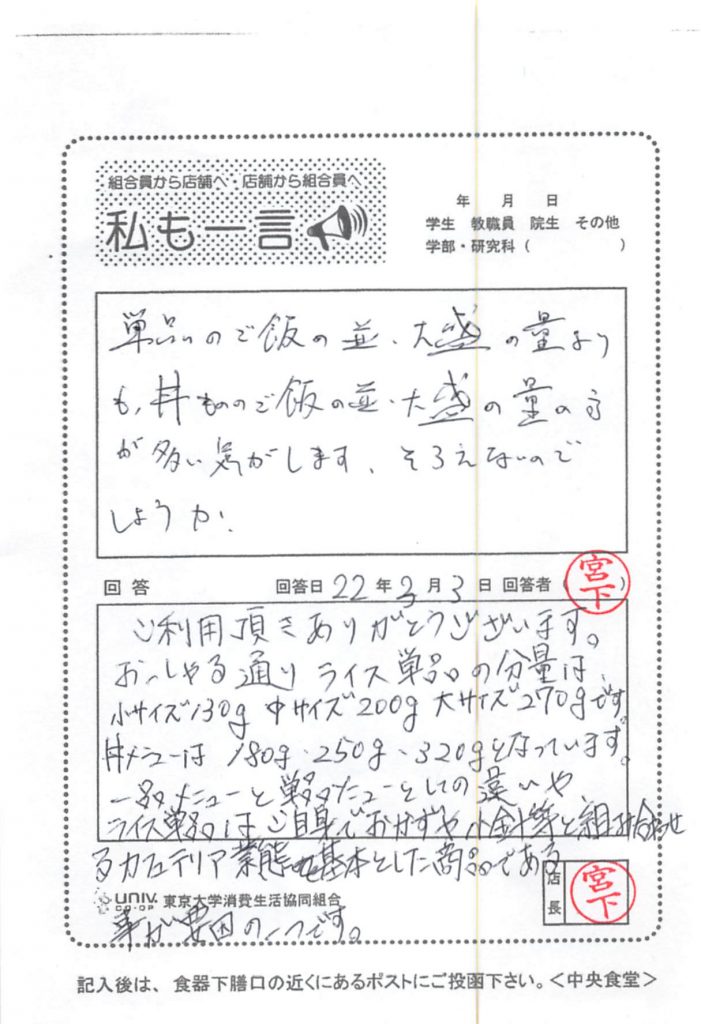 組合員から店舗へ・店舗から組合員へ
私も一言
年 月 日
学生 教職員 院生 その他
学部・研究科（ ）
単品のご飯の並・大盛の量より
も、丼もののご飯の並・大盛の量の方
が多い気がします、そろえないので
しょうか、
回答 回答日 22年3月3日 回答者（宮下）
ご利用頂きありがとうございます。
おっしゃる通りライス単品の分量は、
小サイズ130g 中サイズ200g 大サイズ270gです。
丼メニューは 180g・250g・320gとなっています。
一品メニューと単品メニューとしての違いや、
ライス単品はご自身でおかずや小鉢等と組み合わせ
るカフェテリア業態を基本とした商品である
店長 宮下
UNIV. CO-OP 東京大学消費生活協同組合
事が要因の一つです。
記入後は、食器下膳口の近くにあるポストにご投函下さい。＜中央食堂＞